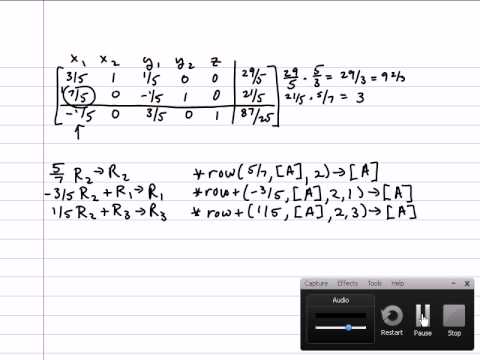 x₁ x₂ y₁ y₂ z
3/5 1 1/5 0 0 29/5
7/5 0 -1/5 1 0 21/5
-1/5 0 3/5 0 1 87/25
29/5 · 5/3 = 29/3 = 9 2/3
21/5 · 5/7 = 3
5/7 R₂ → R₂ *row(5/7, [A], 2) → [A]
-3/5 R₂ + R₁ → R₁ *row+(-3/5, [A], 2, 1) → [A]
1/5 R₂ + R₃ → R₃ *row+(1/5, [A], 2, 3) → [A]
Capture Effects Tools Help
Audio
Restart Pause Stop